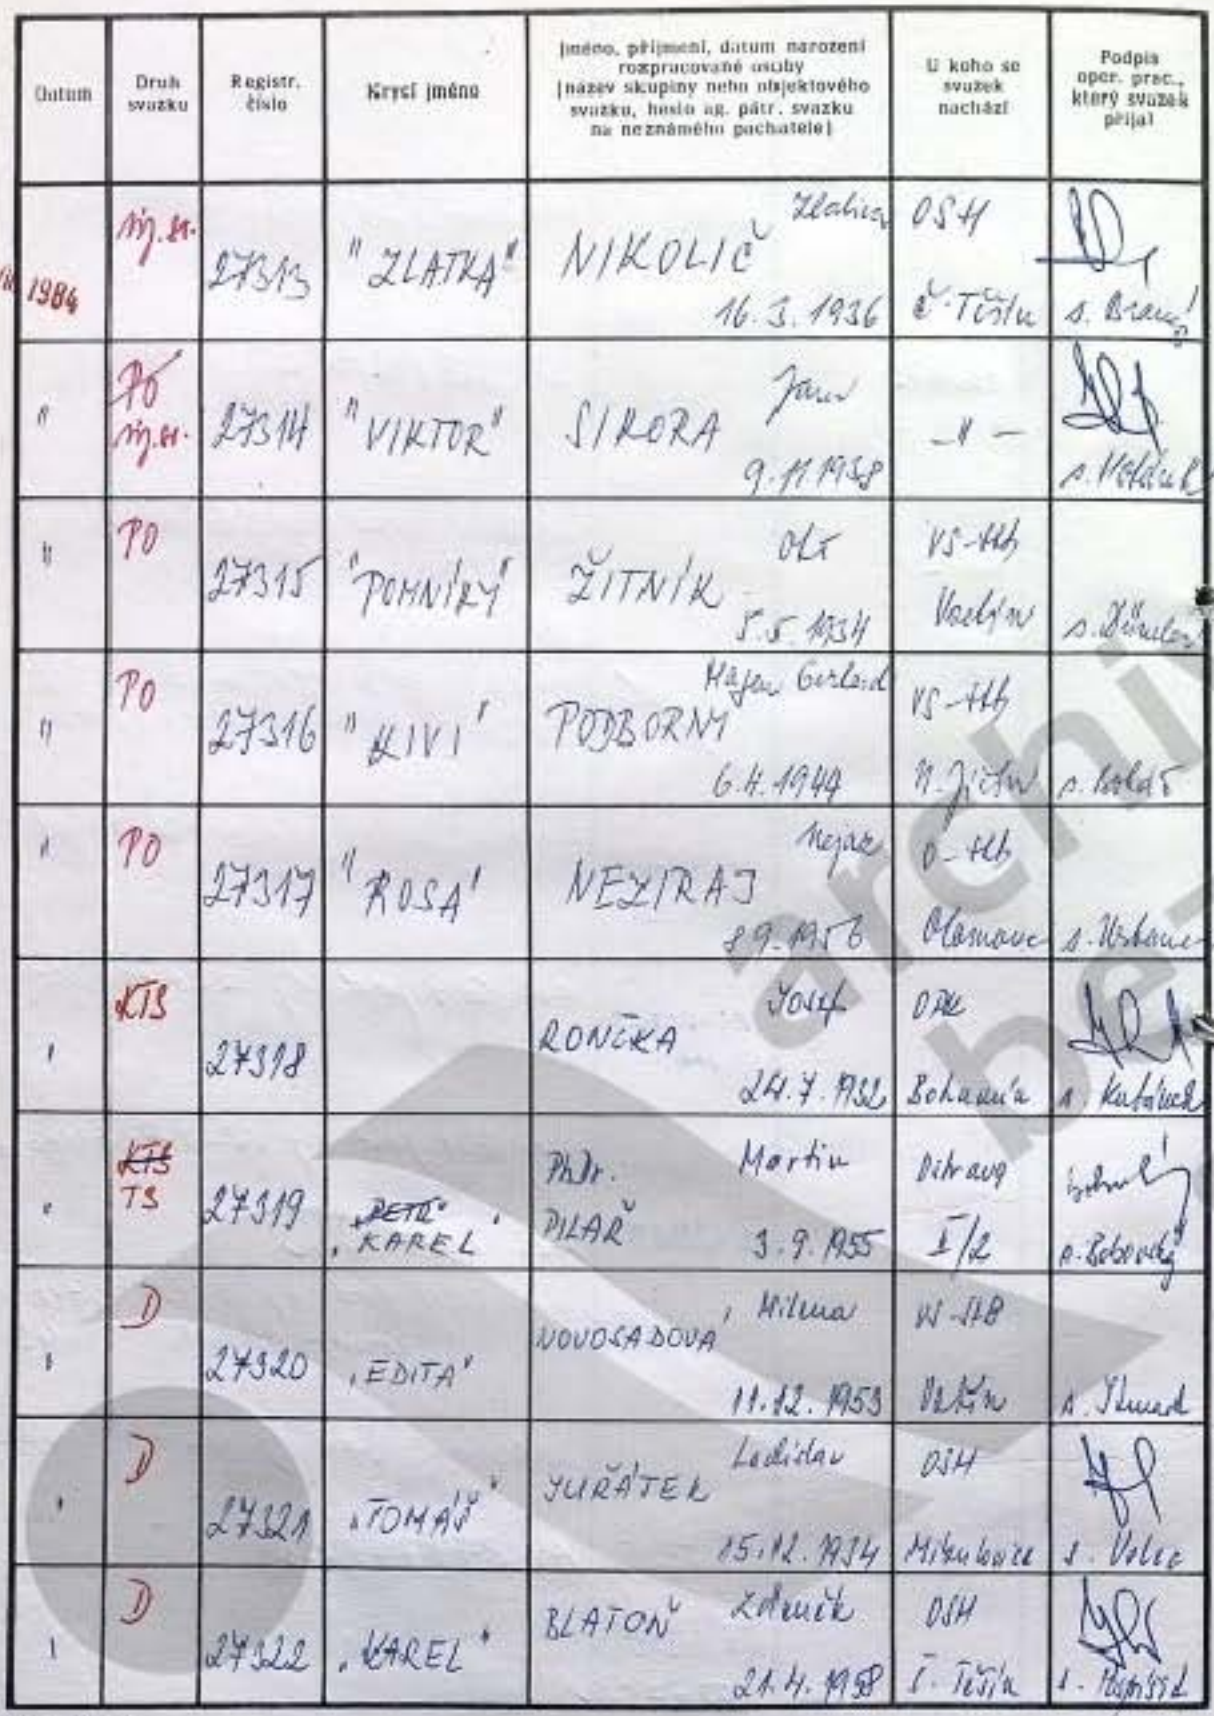 Datum
Druh svazku
Registr. číslo
Krycí jméno
Jméno, příjmení, datum narození
rozpracované osoby
(název skupiny nebo objektového
svazku, heslo ag. pátr. svazku
na neznámého pachatele)
U koho se svazek nachází
Podpis oper. prac., který svazek přijal
1984 27313 "ZLATKA" NIKOLIČ OSH
16.3.1936 Č. Těšín s.
" PO 27314 "VIKTOR" SIKORA - " -
9.11.1938 s.
" PO 27315 "POMNÍKY" ŽITNÍK
5.5.1934 Vsetín s.
" PO 27316 "KIVI" PODBORNY
6.4.1944 N. Jičín s.
" PO 27317 "ROSA" NEZIRAJ
8 9.1956 Olomouc s. Urbanec
" KTS 27318 RONČKA Josef OPK
24.7.1932 Bohumín s.
" KTS TS 27319 "PETR" "KAREL" PhDr. PILAŘ Martin Ostrava
3.9.1955 I/2 s.
" D 27320 "EDITA" NOVOSADOVA, Milena VS-StB
11.12.1953 Vsetín s.
" D 27321 "TOMÁŠ" JUŘÁTEK Ladislav OSH
15.12.1934 Mikulovice s.
" D 27322 "KAREL" BLATOŇ Zdeněk OSH
21.4.1958 Č. Těšín s.
archiv
be